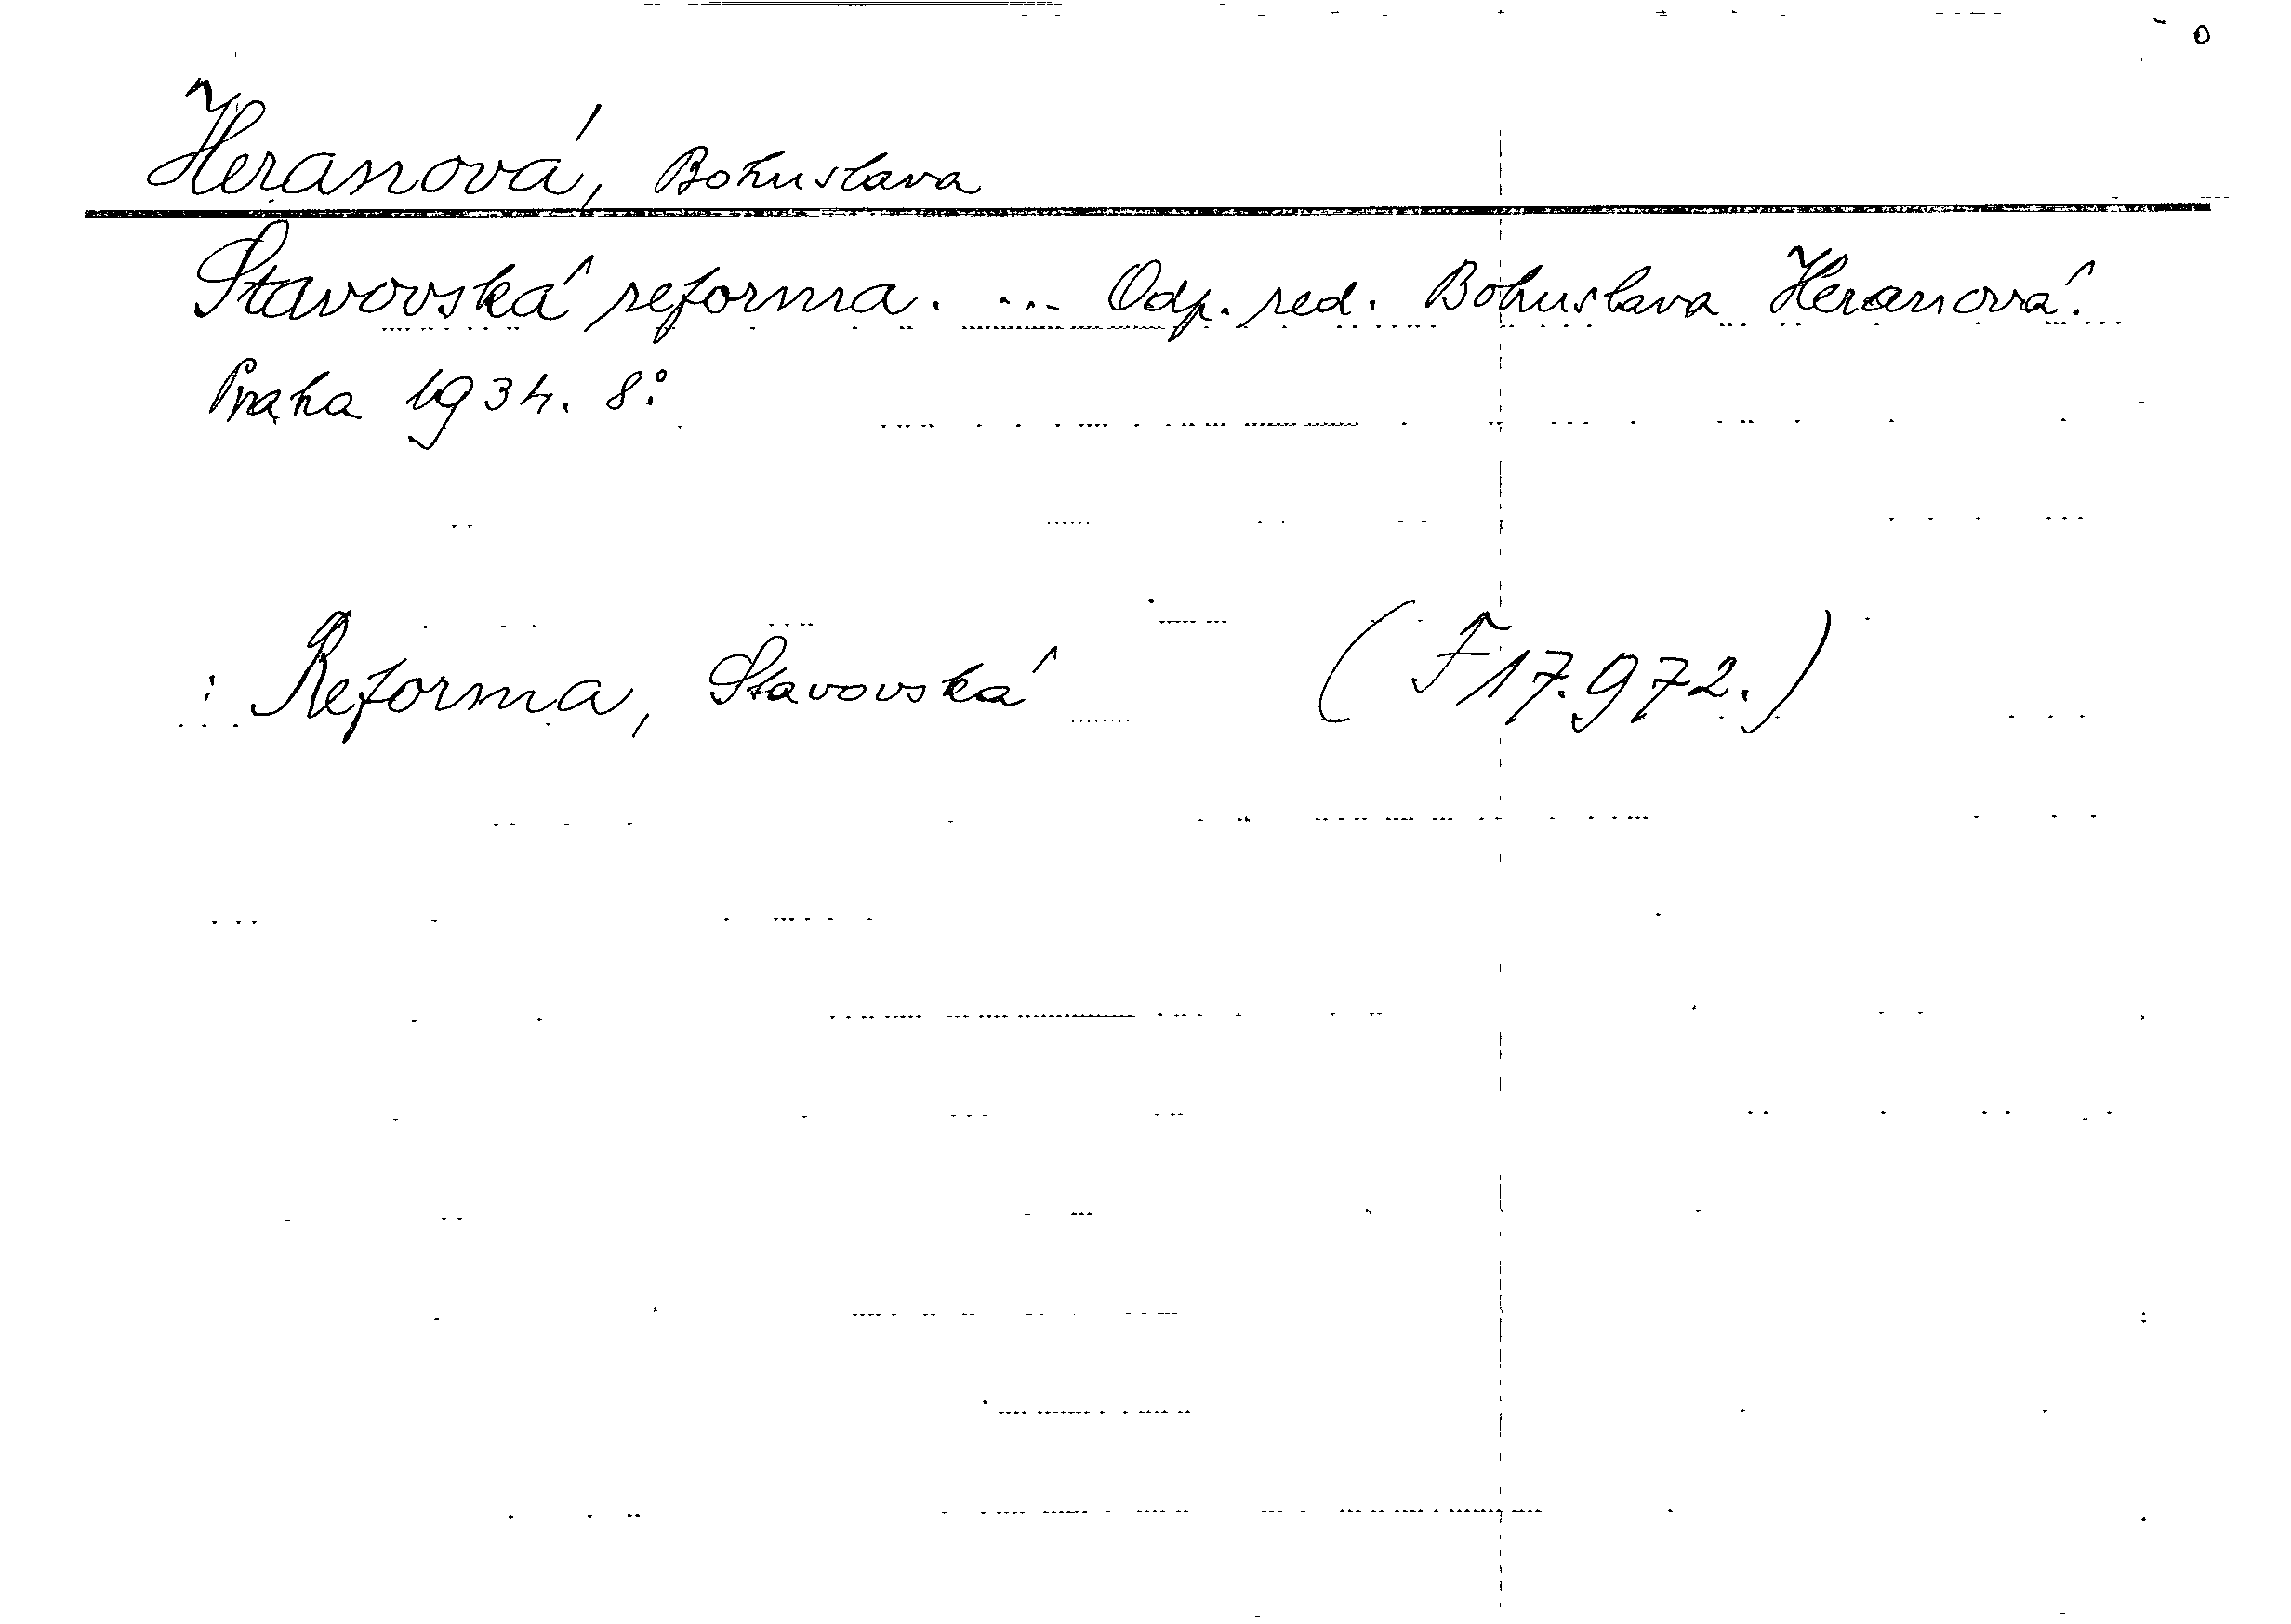 Heranová, Bohuslava
Stavovská reforma. ... Odp. red. Bohuslava Heranová.
Praha 1934. 8.°
: Reforma, Stavovská (F 17.972.)